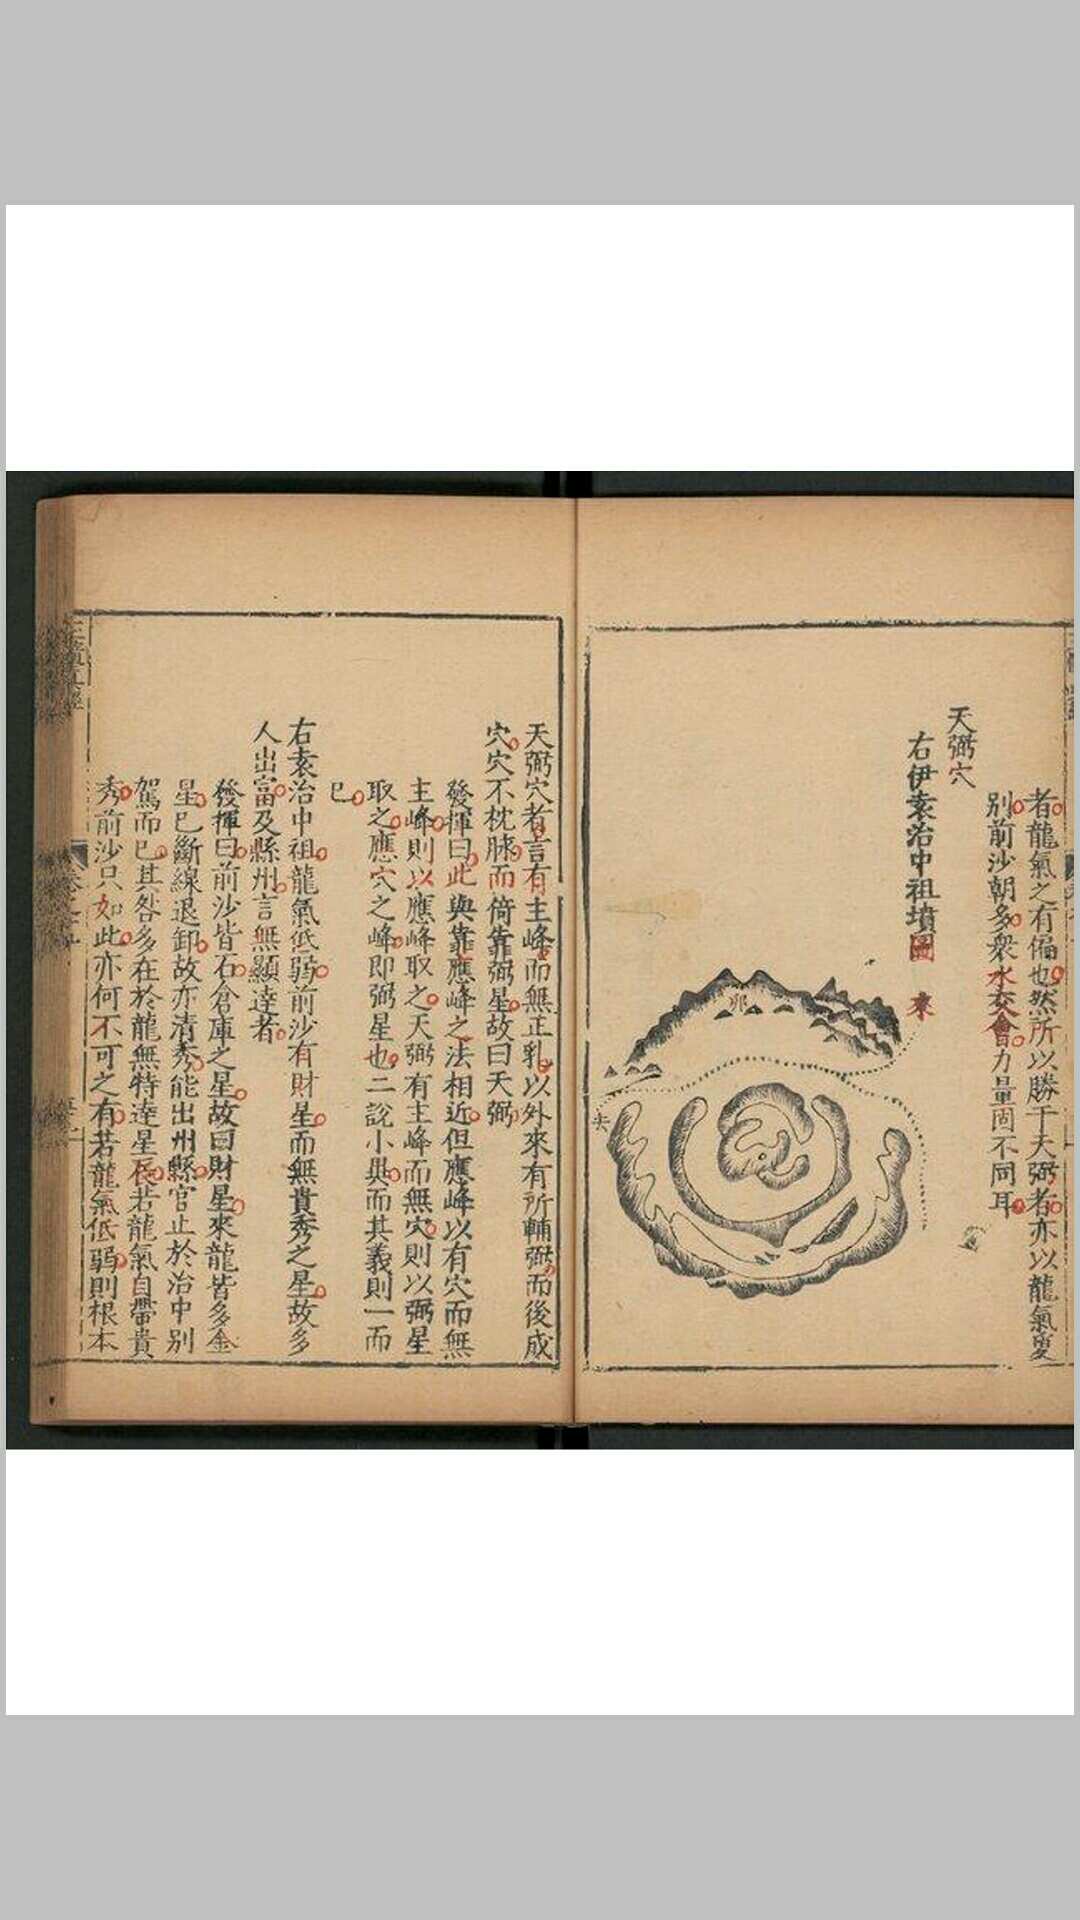 者龍氣之有偏也然所以勝于天弼者亦以龍氣夐
別前沙朝多衆水交會力量固不同耳
天弼穴
右伊袁治中祖墳圖
來
去
天弼穴者言有主峰而無正乳以外來有所輔弼而後成
穴穴不枕脉而倚靠弼星故曰天弼
發揮曰此與靠應峰之法相近但應峰以有穴而無
主峰則以應峰取之天弼有主峰而無穴則以弼星
取之應穴之峰即弼星也二說小異而其義則一而
已
右袁治中祖龍氣低弱前沙有財星而無貴秀之星故多
人出富及縣州言無顯達者
發揮曰前沙皆石倉庫之星故曰財星來龍皆多金
星已斷線退卸故亦清秀能出州縣官止於治中別
駕而已其咎多在於龍無特達星辰若龍氣自帶貴
秀前沙只如此亦何不可之有若龍氣低弱則根本